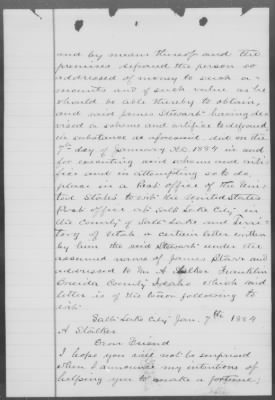 and by means thereof and the
premises defraud the person so
addressed of money to such a-
mounts and of such value as he
should be able thereby to obtain,
and said James Stewart having de-
vised a scheme and artifice to defraud
in substance as aforesaid did on the
7th day of January A.D. 1884 in and
for executing said scheme and arti-
fice and in attempting so to do,
place in a Post office of the Uni-
ted States to wit: the United States
Post office at Salt Lake City in
the County of Salt Lake and Terri-
tory of Utah a certain letter written
by him the said Stewart under the
assumed name of James Starr and
addressed to Mr. A Stalker Franklin
Oneida County Idaho which said
letter is of the tenor following to
wit:
Salt Lake City Jan. 7th 1884
A Stalker
Dear Friend
I hope you will not be surprised
when I announce my intentions of
helping you to make a fortune;